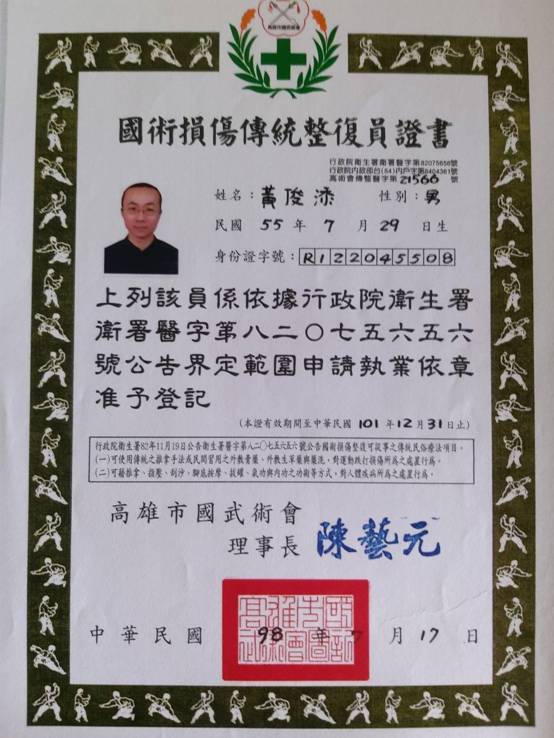 國術損傷傳統整復員證書
行政院衛生署衛署醫字第82075656號
行政院內政部台(84)內戶字第8404361號
高術會傳整醫字第21566號
姓名:黃俊添 性別:男
民國 55 年 7 月 29 日生
身份證字號:R122045508
上列該員係依據行政院衛生署
衛署醫字第八二〇七五六五六
號公告界定範圍申請執業依章
准予登記
(本證有效期間至中華民國 101 年 12 月 31 日止)
行政院衛生署82年11月19日公告衛生署醫字第八二〇七五六五六號公告國術損傷整復可從事之傳統民俗療法項目。
(一)可使用傳統之推拿手法或民間習用之外敷膏藥、外敷生草藥與藥洗,對運動跌打損傷所為之處置行為。
(二)可藉推拿、指壓、刮沙、腳底按摩、拔罐、氣功與內功之功術等方式,對人體疾病所為之處置行為。
高雄市國武術會
理事長 陳藝元
中華民國 98 年 7 月 17 日